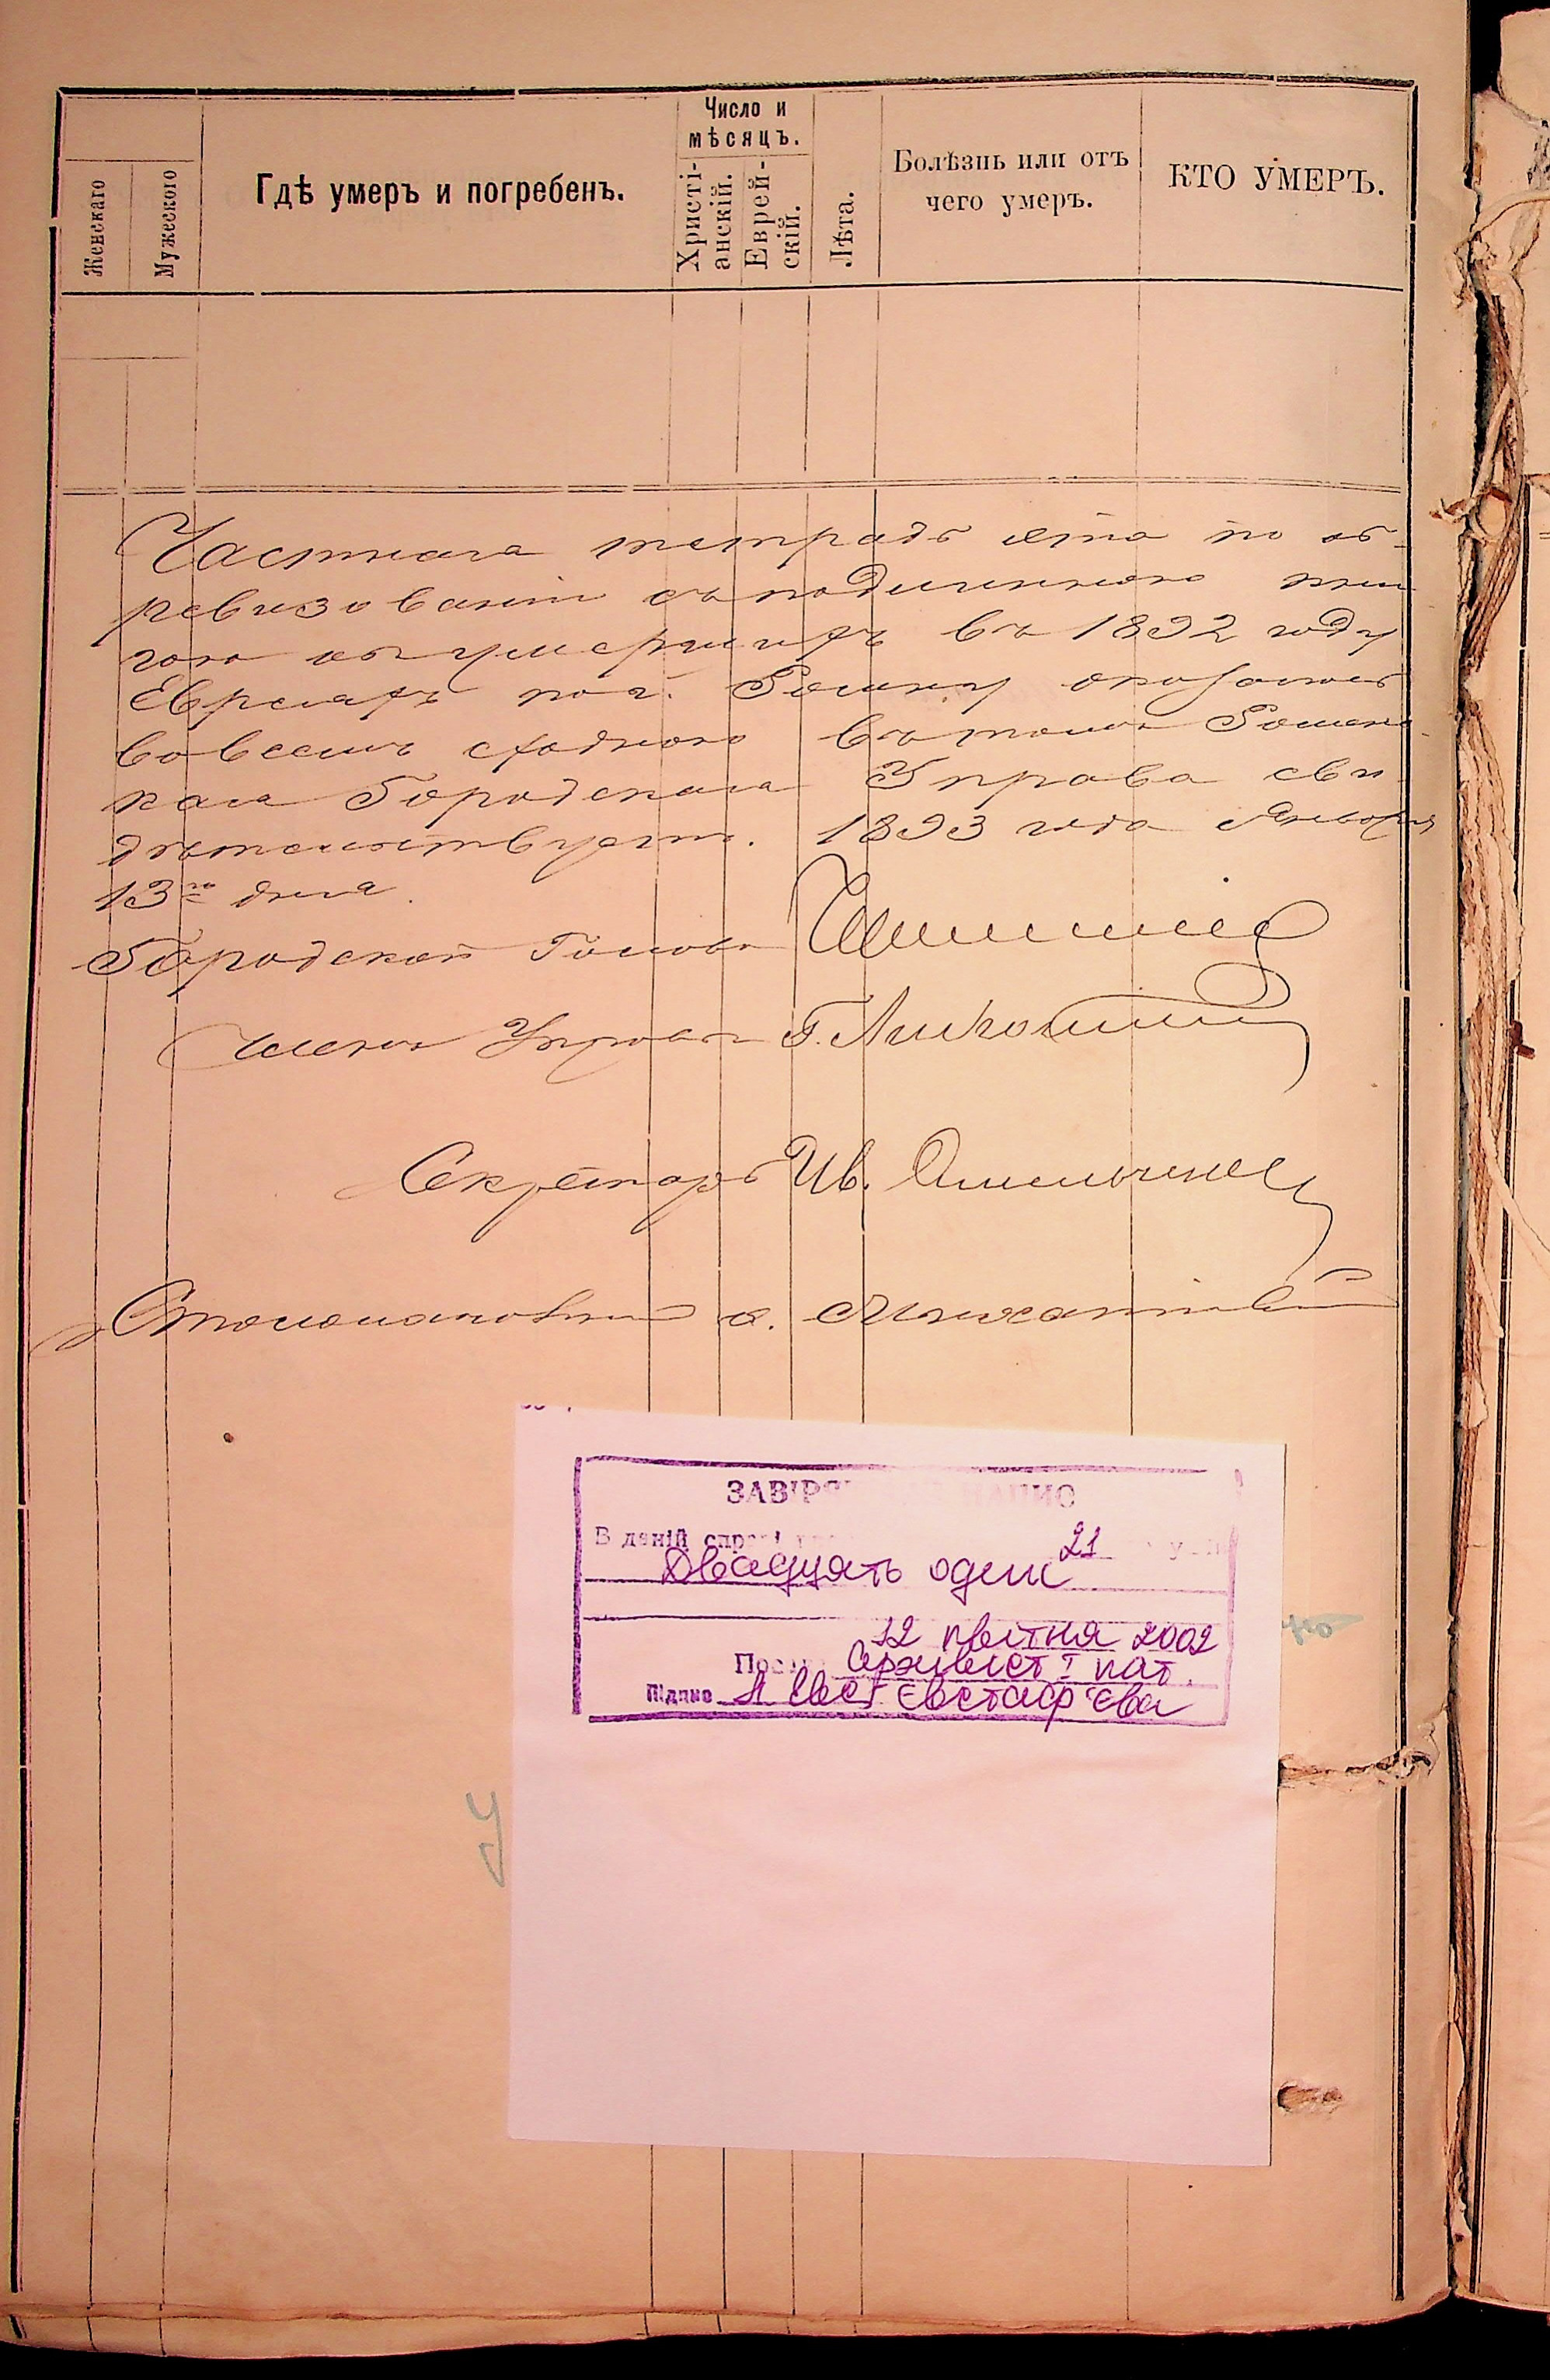 Женскаго
Мужескаго
Гдѣ умеръ и погребенъ.
Число и
мѣсяцъ.
Христі-
анскій.
Еврей-
скій.
Лѣта.
Болѣзнь или отъ
чего умеръ.
КТО УМЕРЪ.
Частная тетрадь эта по об-
ревизованіи съ подлинною кни
гою объ умершихъ въ 1892 году
Евреяхъ по г. Ромну оказалась
во всемъ сходною въ томъ Ромен-
ская Городская Управа сви-
дѣтельствуетъ. 1893 года Января
13го дня.
Городской Голова
Членъ Управы Г.
Секретарь Ив.
Столоначальникъ
ЗАВІР НАПИС
В даній спр 21
Двадцять один
12 квітня 2002
Пос Архивіст I кат.
Підпис Євстаф'єва